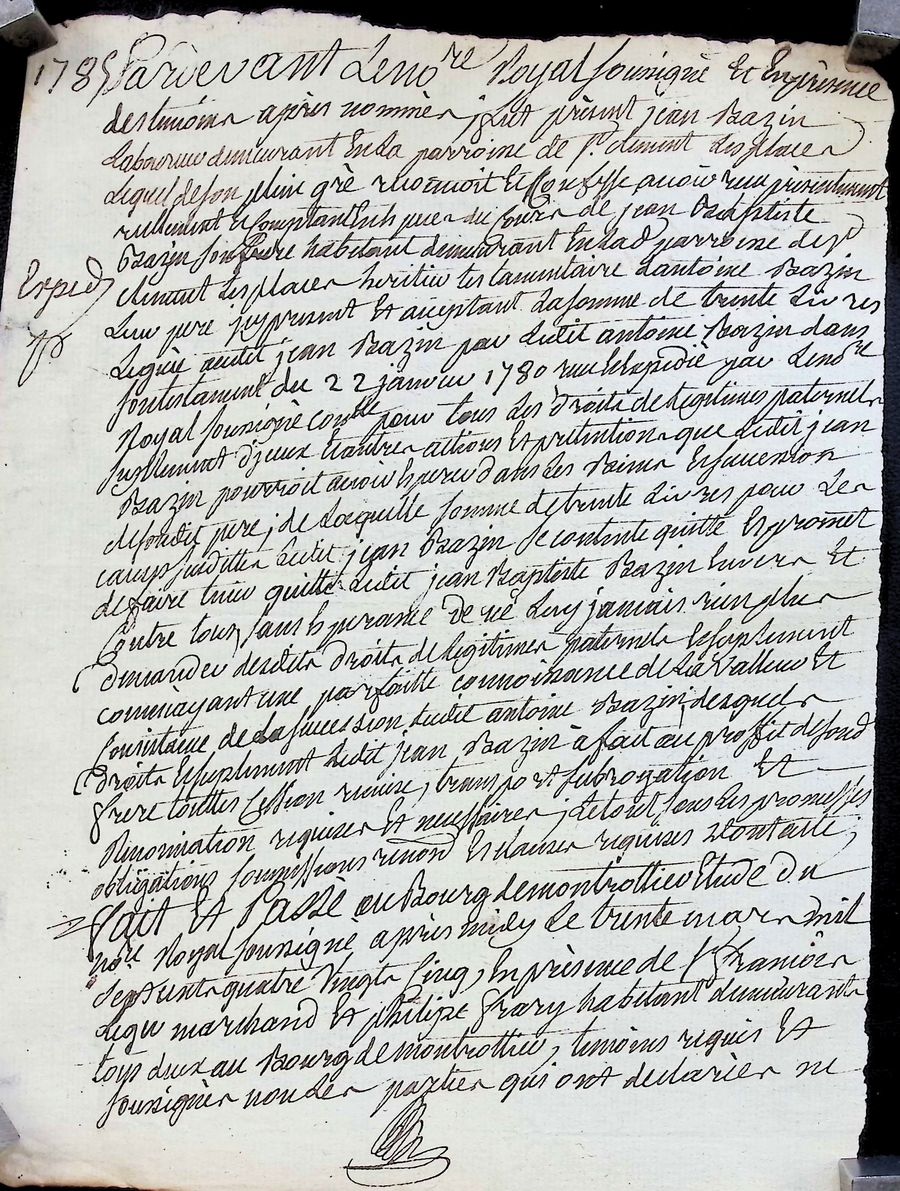 1785 Pardevant Leno.re Royal soussigné Et Enpresence
destemoins après nommés, fut présent jean Bazin
Laboureur demeurant En La parroisse de St. clement Les places
Lequel de son plein gré reconnoit Et Confesse avoir reçu présentement
reellement Et Comptant En Espèces du Cours de jean Baptiste
Bazin son frere habitant demeurant En Lad. parroisse de St
Exped
clement Les places heritier testamentaire dantoine Bazin
Leur pere, jcy present Et acceptant La somme de trente Livres
Leguée audit jean Bazin par Ledit antoine Bazin dans
son testament du 22 janvier 1780 reçu Et Expedié par Leno.re
Royal soussigné pour tous Les Droits de Legitimes paternels
suplement d'jceux Et autres actions Et prétentions que Ledit jean
Bazin pourroit avoir Esperer dans Les Biens Et succession
desondit pere, de Laquelle somme de trente Livres pour Les
causes susdittes Ledit jean Bazin se contente quitte Et promet
de faire tenir quitte Ledit jean Baptiste Bazin Envers Et
Contre tous, sans Esperance de ne Luy jamais rien plus
Demander desdits Droits de Legitimes paternels Et suplement
comme ayant une parfaitte connoissance de La Valleur Et
Consistance de La succession dudit antoine Bazin, desquels
Droits Et suplement Ledit jean Bazin à fait au proffit de sond
frere touttes Cession remise, transport subrogation Et
Renonciation requises Et necessaires, Le tout sous Les promesses
obligations soumissions renond Et clauses requises
Fait Et Passé au Bourg de montrottier Etude du
no.re Royal soussigné après midy Le trente mars mil
sept cents quatre Vingts Cinq, En présence de Sr François
marchand Et philipe habitant demeurants
tous deux au Bourg de montrottier, temoins requis Et
soussignés non Les parties qui ont declarées ne